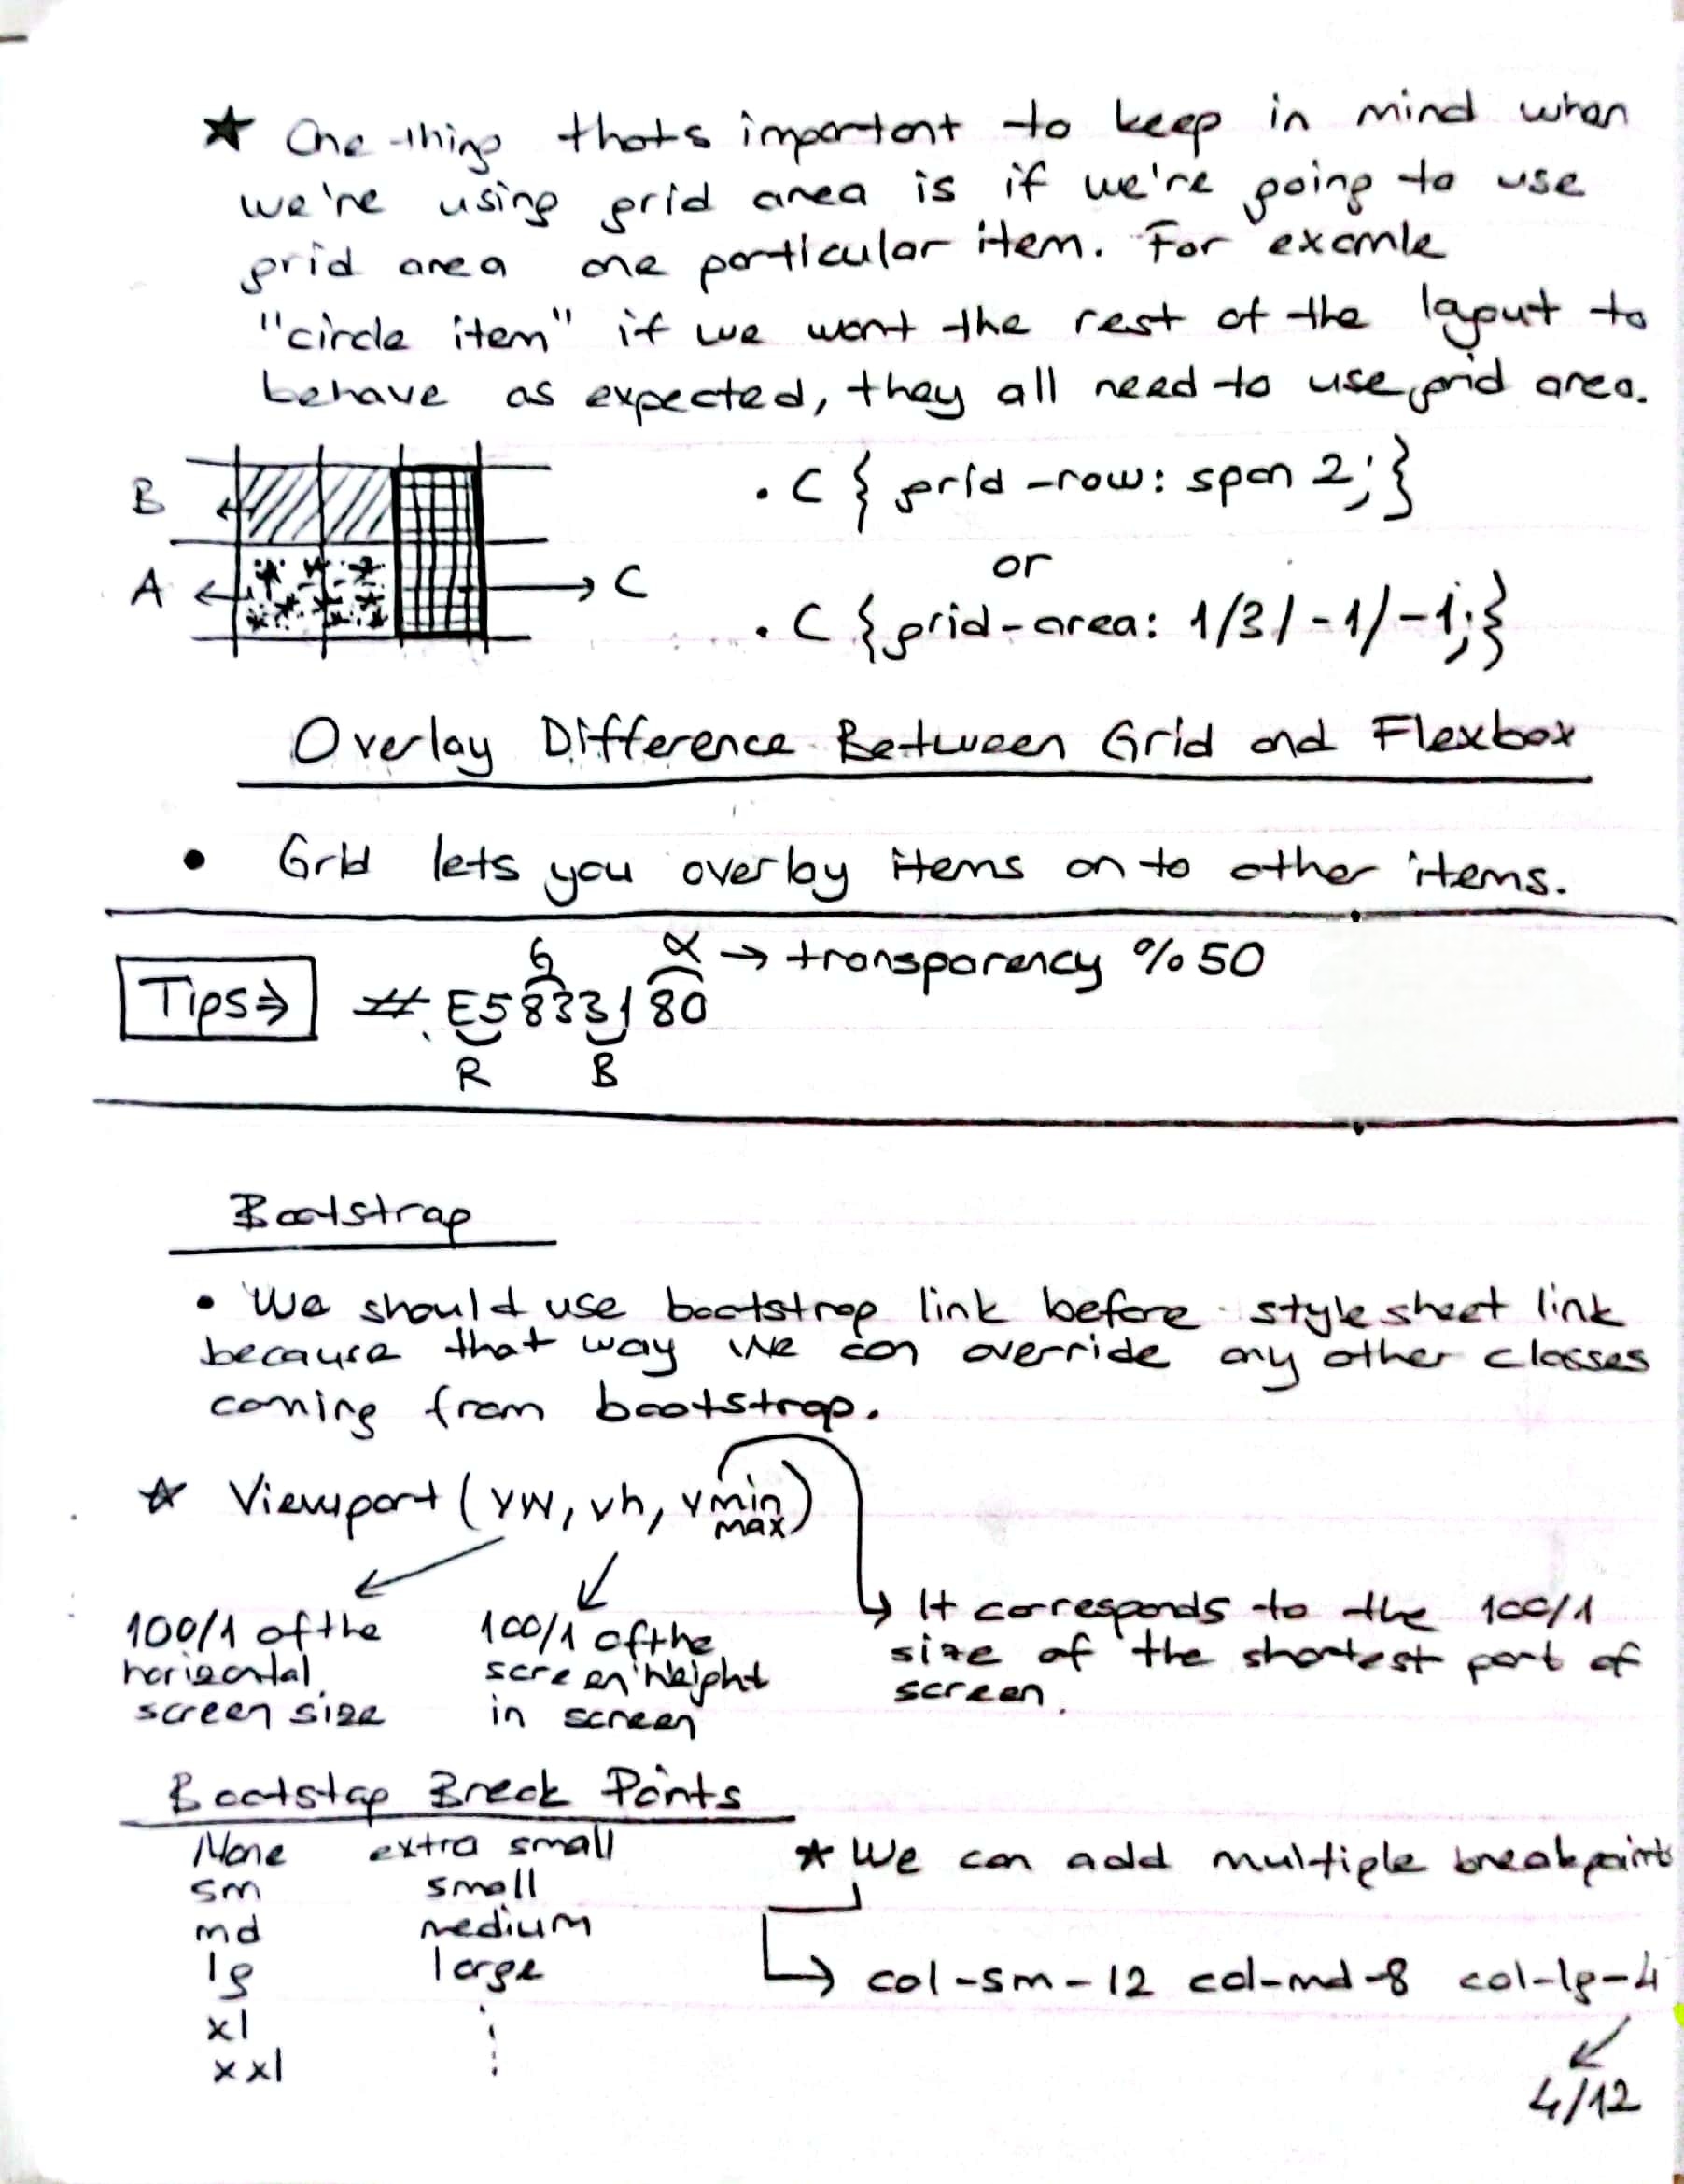 ★ One thing thats important to keep in mind when
we're using grid area is if we're going to use
grid area one particular item. For examle
"circle item" if we want the rest of the layout to
behave as expected, they all need to use grid area.
B
.C { grid-row: span 2; }
or
A
C
.C { grid-area: 1/3/-1/-1; }
Overlay Difference Between Grid and Flexbox
• Grid lets you overlay items on to other items.
G α → transparency %50
Tips ⇒ # E5833180
R B
Bootstrap
• We should use bootstrap link before stylesheet link
because that way we can override any other classes
coming from bootstrap.
☆ Viewport (vw, vh, vmin)
max
100/1 of the
horizontal
screen size
100/1 of the
screen height
in screen
It corresponds to the 100/1
size of the shortest part of
screen.
Bootstap Break Points
None extra small
sm small
md medium
lg large
xl
xxl
★ We can add multiple breakpoints
→ col-sm-12 col-md-8 col-lg-4
4/12